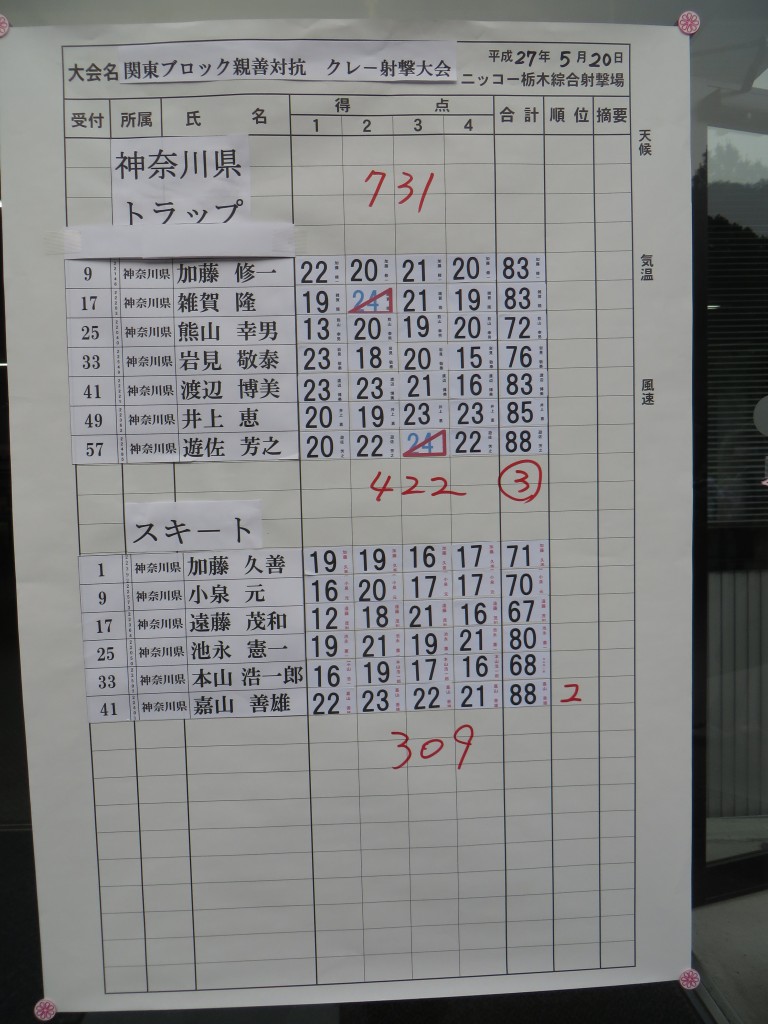 大会名 関東ブロック親善対抗 クレー射撃大会 平成27年5月20日
ニッコー栃木綜合射撃場
受付 所属 氏名 得点 合計 順位 摘要
1 2 3 4
天候
気温
風速
神奈川県
トラップ
731
9 神奈川県 加藤 修一 22 20 21 20 83
17 神奈川県 雑賀 隆 19 24 21 19 83
25 神奈川県 熊山 幸男 13 20 19 20 72
33 神奈川県 岩見 敬泰 23 18 20 15 76
41 神奈川県 渡辺 博美 23 23 21 16 83
49 神奈川県 井上 恵 20 19 23 23 85
57 神奈川県 遊佐 芳之 20 22 24 22 88
422 ③
スキート
1 神奈川県 加藤 久善 19 19 16 17 71
9 神奈川県 小泉 元 16 20 17 17 70
17 神奈川県 遠藤 茂和 12 18 21 16 67
25 神奈川県 池永 憲一 19 21 19 21 80
33 神奈川県 本山 浩一郎 16 19 17 16 68
41 神奈川県 嘉山 善雄 22 23 22 21 88 2
309